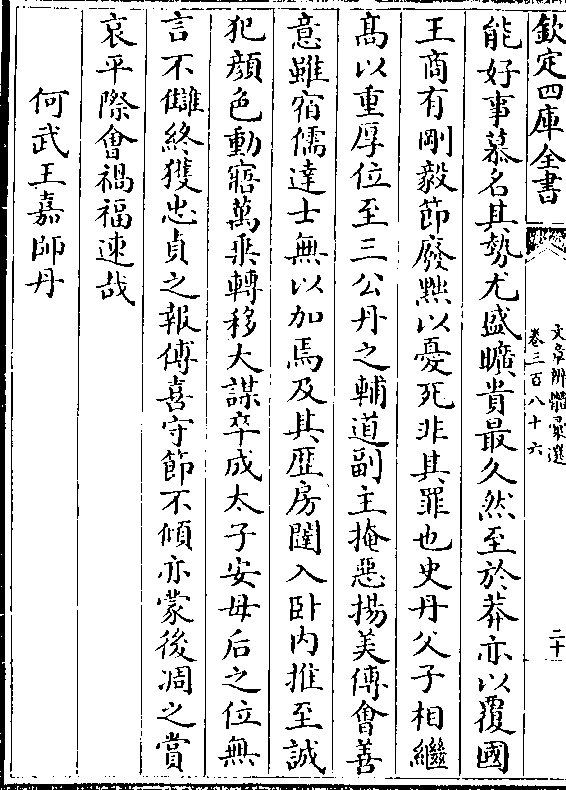 欽定四庫全書
文章辨體彙選
卷三百八十六
二十
能好事慕名其勢尤盛曠貴最久然至於莽亦以覆國
王商有剛毅節廢黜以憂死非其罪也史丹父子相繼
髙以重厚位至三公丹之輔道副主掩惡揚美傅會善
意雖宿儒達士無以加焉及其歴房闥入卧内推至誠
犯顔色動寤萬乘轉移大謀卒成太子安母后之位無
言不讎終獲忠貞之報傅喜守節不傾亦蒙後凋之賞
哀平際會禍福速哉
何武王嘉師丹